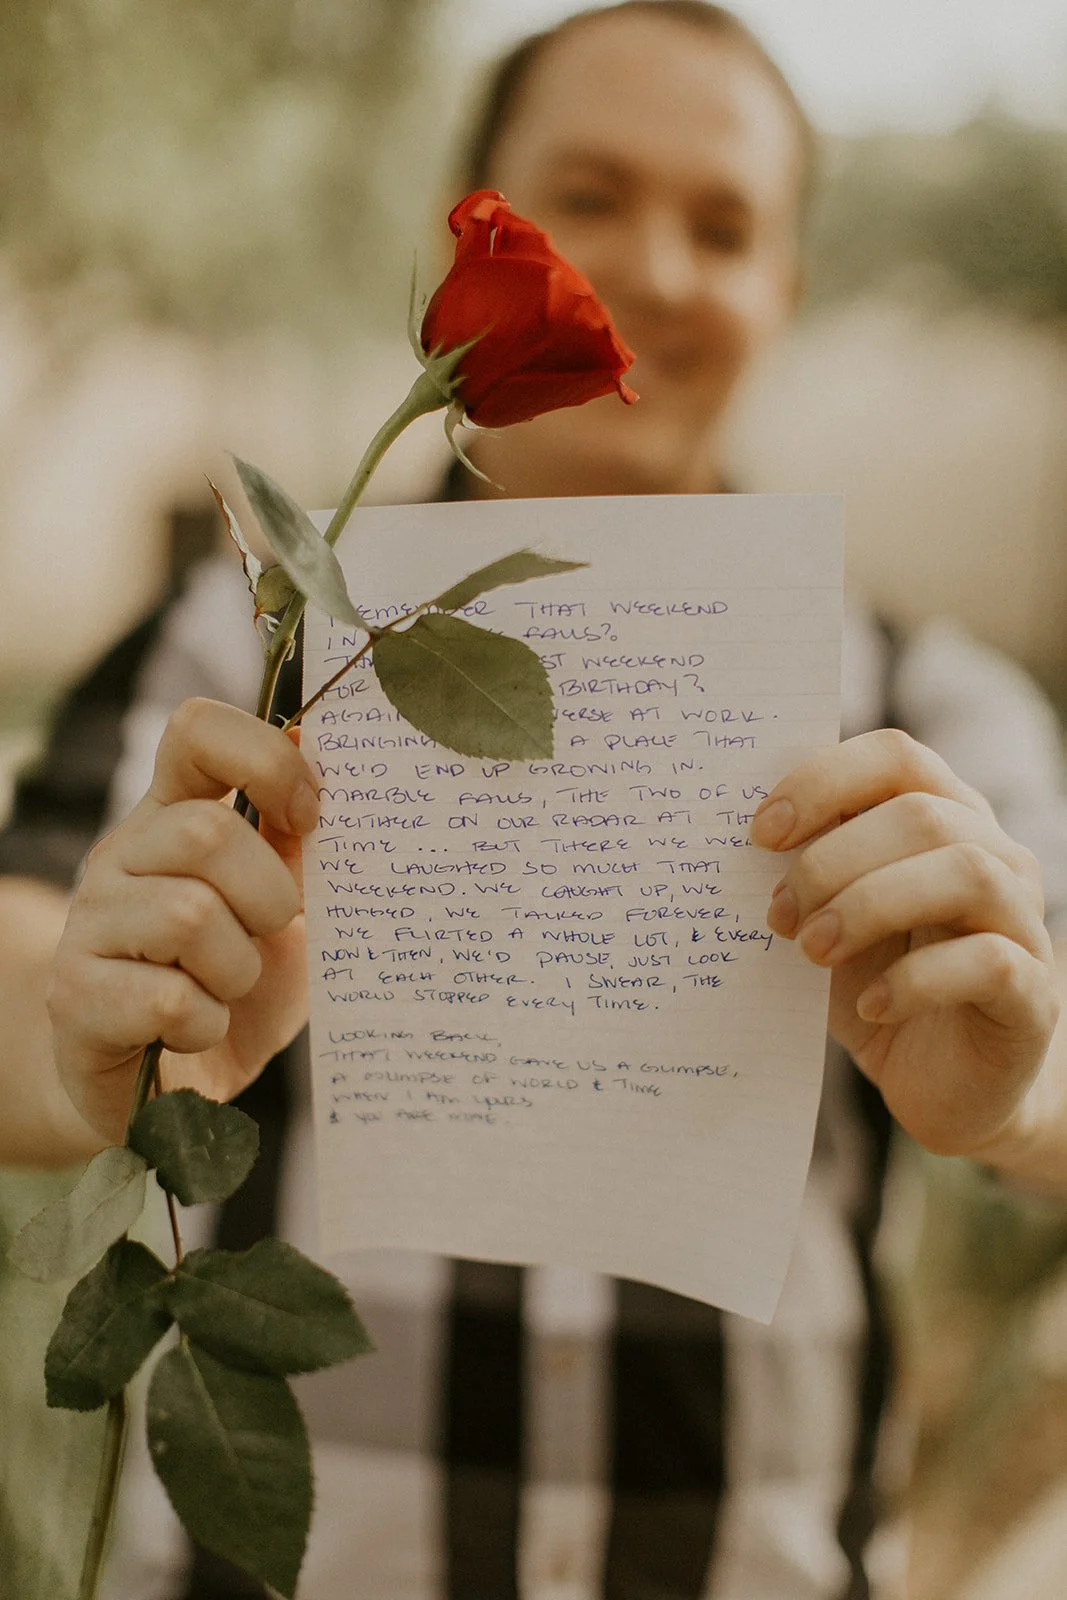 THAT WEEKEND
IN FALLS?
WEEKEND
FOR BIRTHDAY?
AGAIN AT WORK.
BRINGING A PLACE THAT
WE'D END UP GROWING IN.
MARBLE FALLS, THE TWO OF US
NEITHER ON OUR RADAR AT
TIME ... BUT THERE WE
WE LAUGHED SO MUCH THAT
WEEKEND. WE CAUGHT UP, WE
HUGGED, WE TALKED FOREVER,
WE FLIRTED A WHOLE LOT, & EVERY
NOW & THEN, WE'D PAUSE, JUST LOOK
AT EACH OTHER. I SWEAR, THE
WORLD STOPPED EVERY TIME.
LOOKING BACK,
THAT WEEKEND GAVE US A GLIMPSE,
A GLIMPSE OF WORLD & TIME
WHEN I AM YOURS
& YOU ARE MINE.